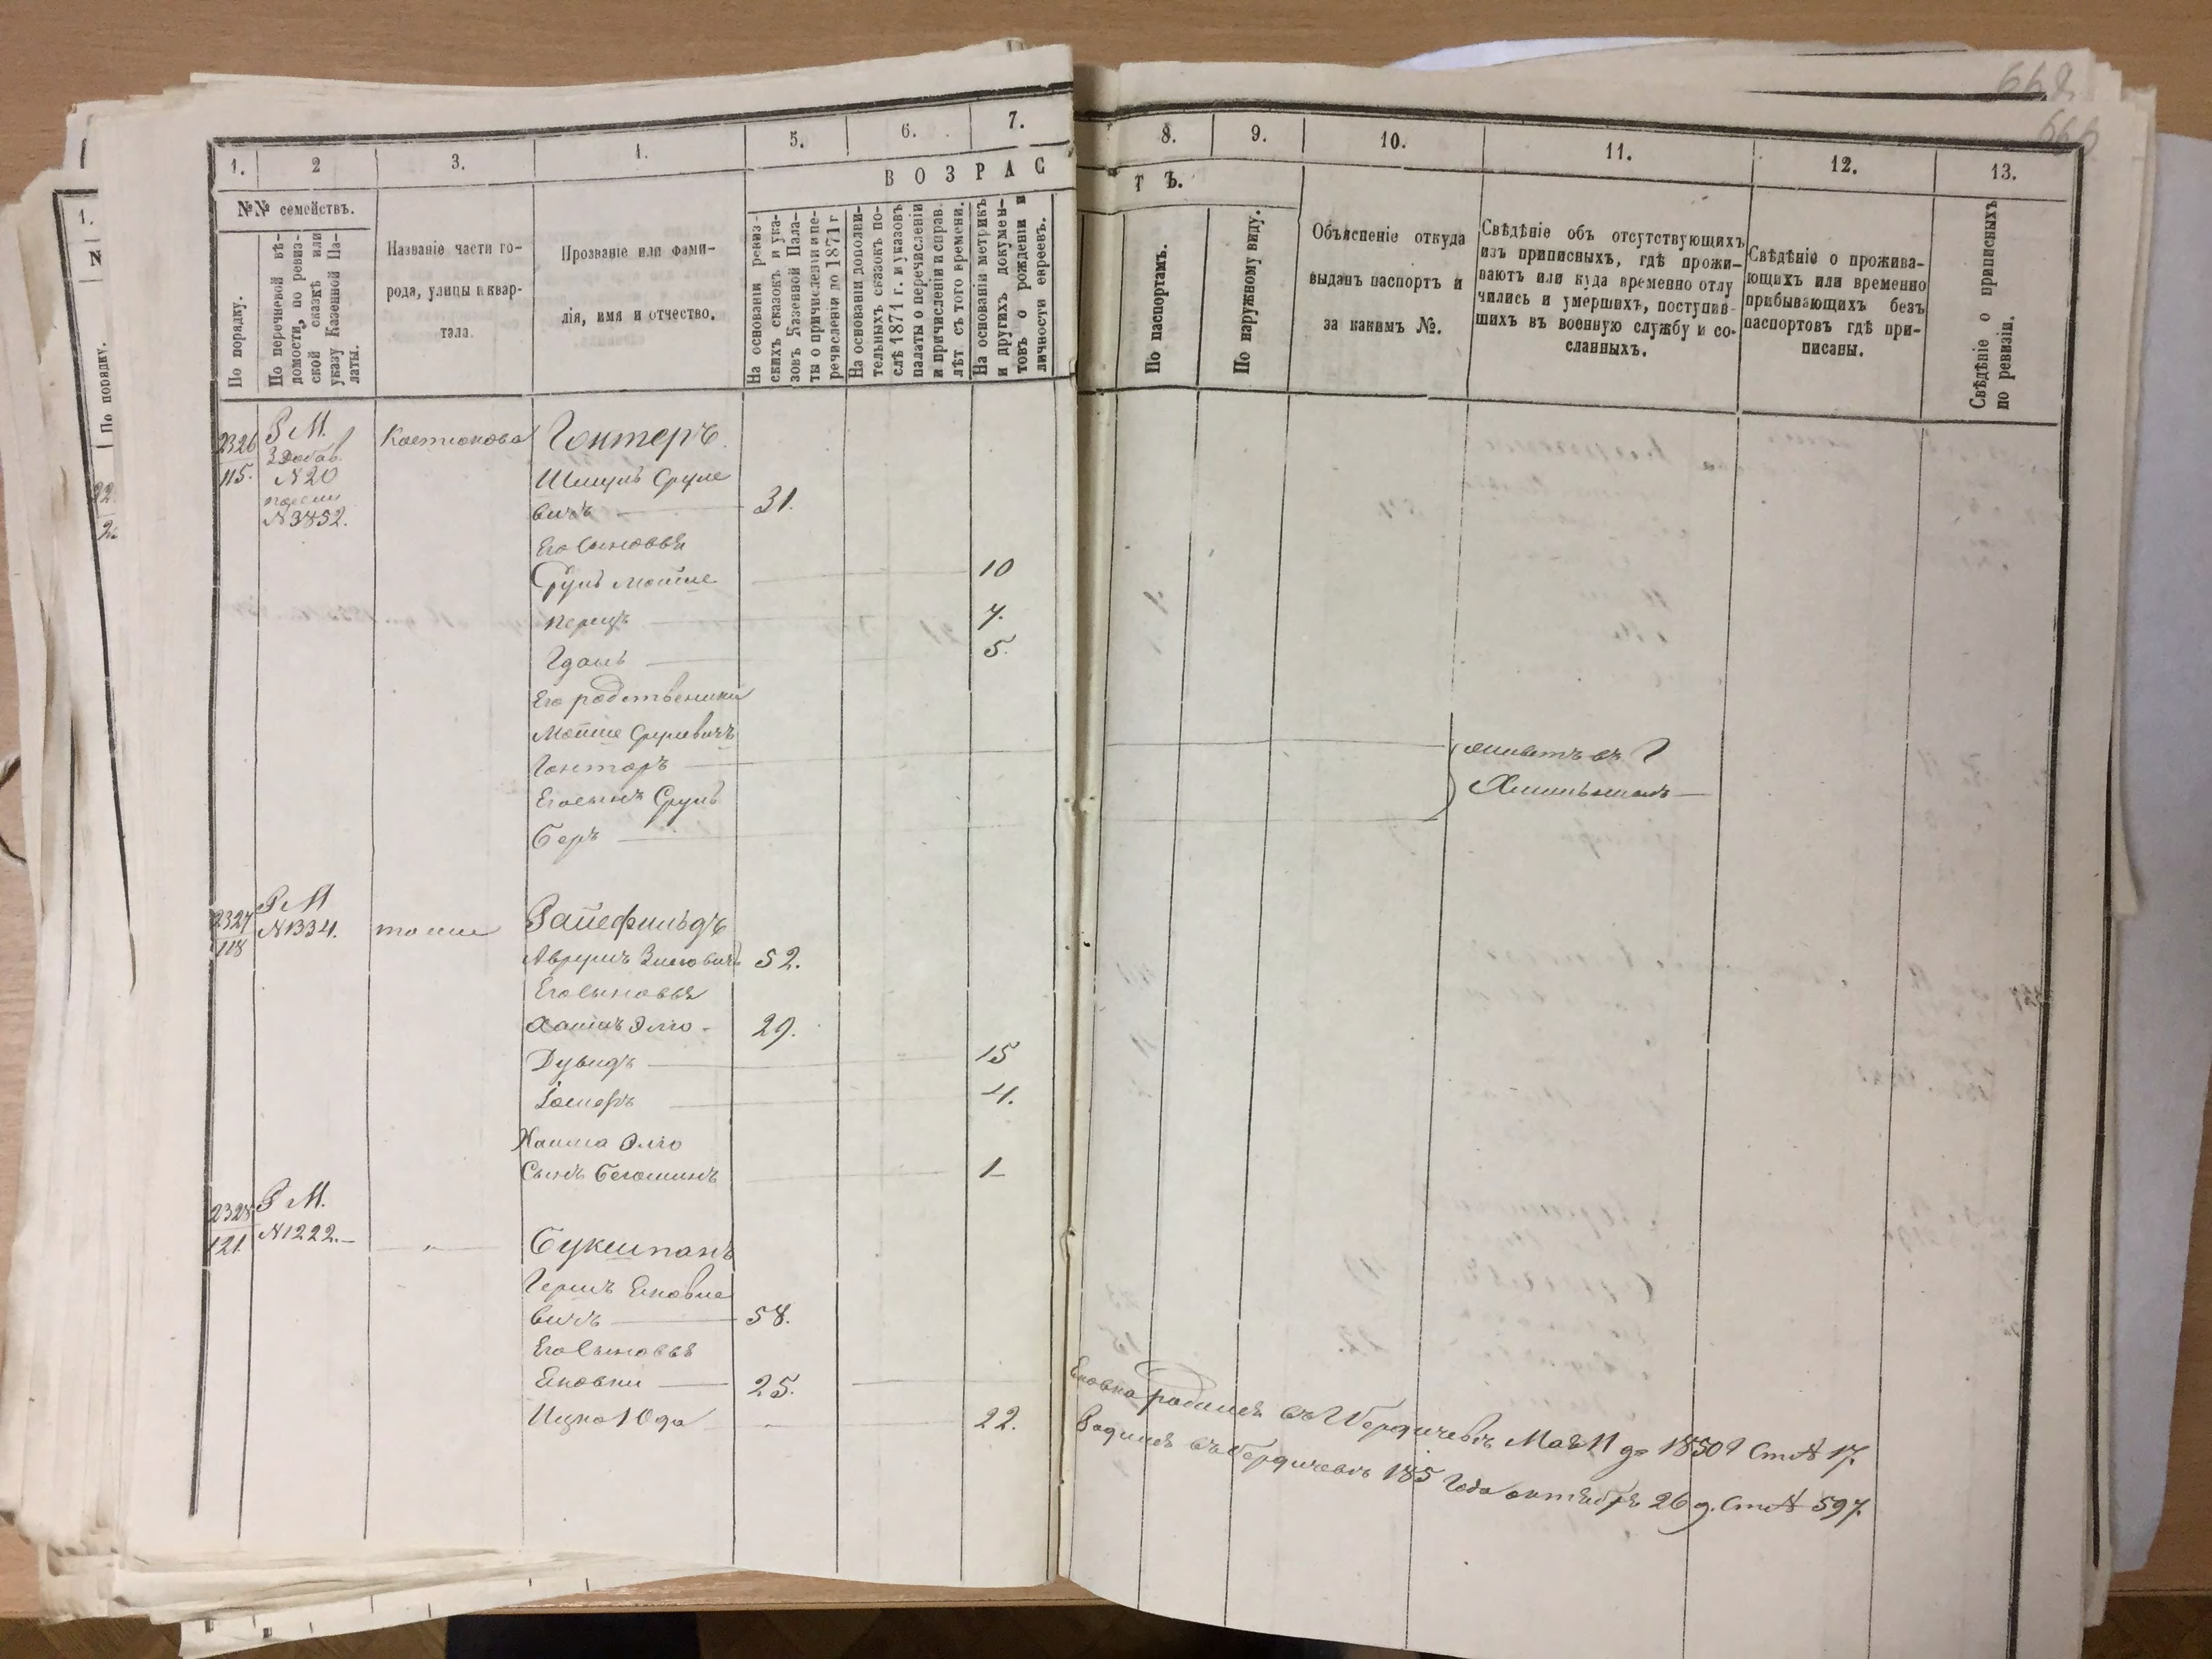 668
666
1.
2
3.
4.
5.
6.
7.
8.
9.
10.
11.
12.
13.
№№ семействъ.
По порядку.
По перечневой вѣ-
домости, по ревиз-
ской сказкѣ или
указу Казенной Па-
латы.
Названіе части го-
рода, улицы и квар-
тала.
Прозваніе или фами-
лія, имя и отчество.
ВОЗРАС
ТЪ.
На основаніи ревиз-
скихъ сказокъ и ука-
зовъ Казенной Пала-
ты о причисленіи и пе-
речисленіи до 1871 г
На основаніи дополни-
тельныхъ сказокъ по-
слѣ 1871 г. и указовъ
палаты о перечисленіи
и причисленіи и справ.
лѣт. съ того времени.
На основаніи метрикъ
и другихъ докумен-
товъ о рожденіи и
личности евреевъ.
По паспортамъ.
По наружному виду.
Объясненіе откуда
выданъ паспортъ и
за какимъ №.
Свѣдѣніе объ отсутствующихъ
изъ приписныхъ, гдѣ прожи-
ваютъ или куда временно отлу
чились и умершихъ, поступив-
шихъ въ военную службу и со-
сланныхъ.
Свѣдѣніе о прожива-
ющихъ или временно
прибывающихъ безъ
паспортовъ гдѣ при-
писаны.
Свѣдѣніе о приписныхъ
по ревизіи.
1.
N
По порядку.
2326
115.
Р М.
3 Добав.
№20
№3852.
Костюкова
Гонтеръ
Шмуль Сруле
вичъ 31.
Его сыновья
Сруль Мойше 10
Перецъ 7.
Гдаль 5.
Его родственики
Мойше Срулевичъ
Гонтаръ
Его сынъ Сруль
Беръ
живетъ въ Г
Хмѣльникѣ
2327
118
Р М
№1334.
тоже
Райсфильдъ
Аврумъ Зисювичъ 52.
Его сыновья
Хаимъ Элю 29.
Дувидъ 15
Іосифъ 4.
Хаима Элю
Сынъ Беюминъ 1
2328
121.
Р М.
№1222.
"
Букшпанъ
Гершъ Янкелев
вичъ 58.
Его сыновья
25.
Ицко Юда 22.
родился въ Г Бердичевѣ Мая 11 дн 1850 г Ст № 17.
Родился въ Бердичевѣ 185 года октября 26 д. Ст № 597.